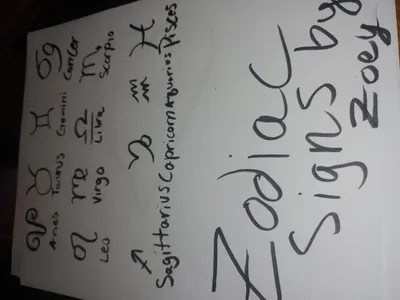 Aries Taurus Gemini Cancer
Leo Virgo Libra Scorpio
Sagittarius Capricorn Aquarius Pisces
Zodiac
Signs by
Zoey